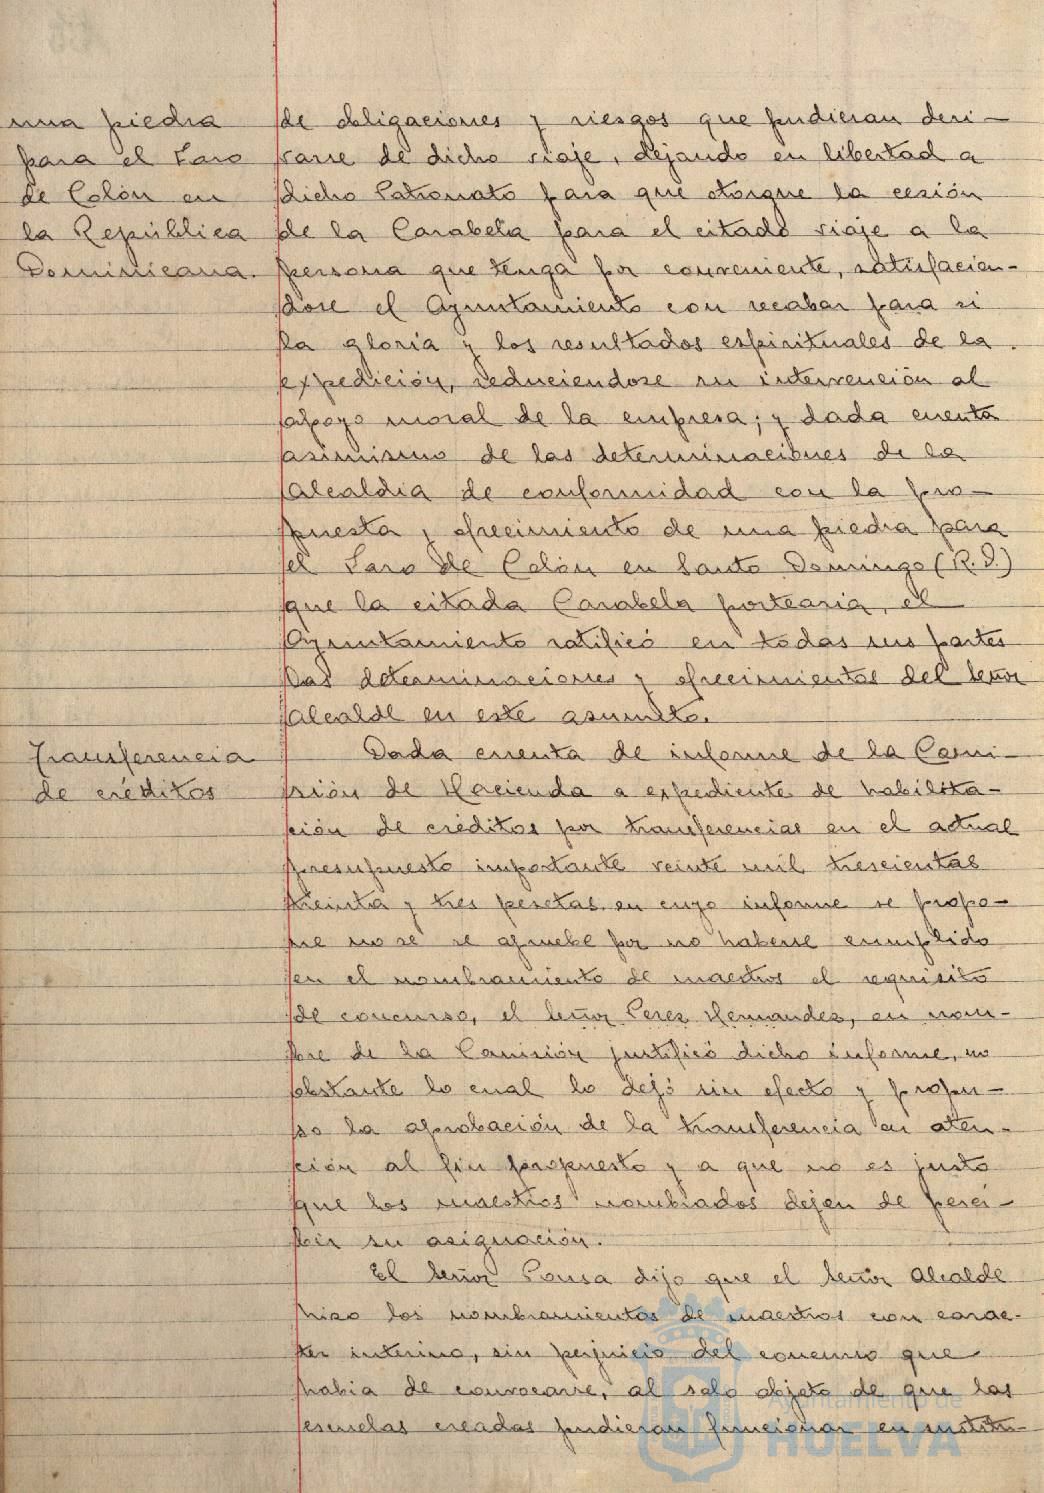 una piedra
para el Faro
de Colón en
la República
Dominicana.
de obligaciones y riesgos que pudieran deri-
varse de dicho viaje, dejando en libertad a
dicho Patronato para que otorgue la cesión
de la Carabela para el citado viaje a la
persona que tenga por conveniente, satisfacien-
dose el Ayuntamiento con recabar para si
la gloria y los resultados espirituales de la
expedición, reduciendose su intervención al
apoyo moral de la empresa; y dada cuenta
asimismo de las determinaciones de la
Alcaldia de conformidad con la pro-
puesta y ofrecimiento de una piedra para
el Faro de Colón en Santo Domingo (R.D.)
que la citada Carabela portearia, el
Ayuntamiento ratificó en todas sus partes
las determinaciones y ofrecimientos del Señor
Alcalde en este asunto.
Transferencia
de créditos
Dada cuenta de informe de la Comi-
sión de Hacienda a expediente de habilita-
ción de créditos por transferencias en el actual
presupuesto importante veinte mil trescientas
treinta y tres pesetas en cuyo informe se propo-
ne no se se apruebe por no haberse cumplido
en el nombramiento de maestros el requisito
de concurso, el Señor Perez Hernandez, en nom-
bre de la Comisión justificó dicho informe, no
obstante lo cual lo dejó sin efecto y propu-
so la aprobación de la transferencia en aten-
ción al fin propuesto y a que no es justo
que los maestros nombrados dejen de perci-
bir su asignación.
El Señor Pousa dijo que el Señor Alcalde
hizo los nombramientos de maestros con carac-
ter interino, sin perjuicio del concurso que
habia de convocarse, al solo objeto de que las
escuelas creadas pudieran funcionar en sustitu-
Ayuntamiento de
HUELVA